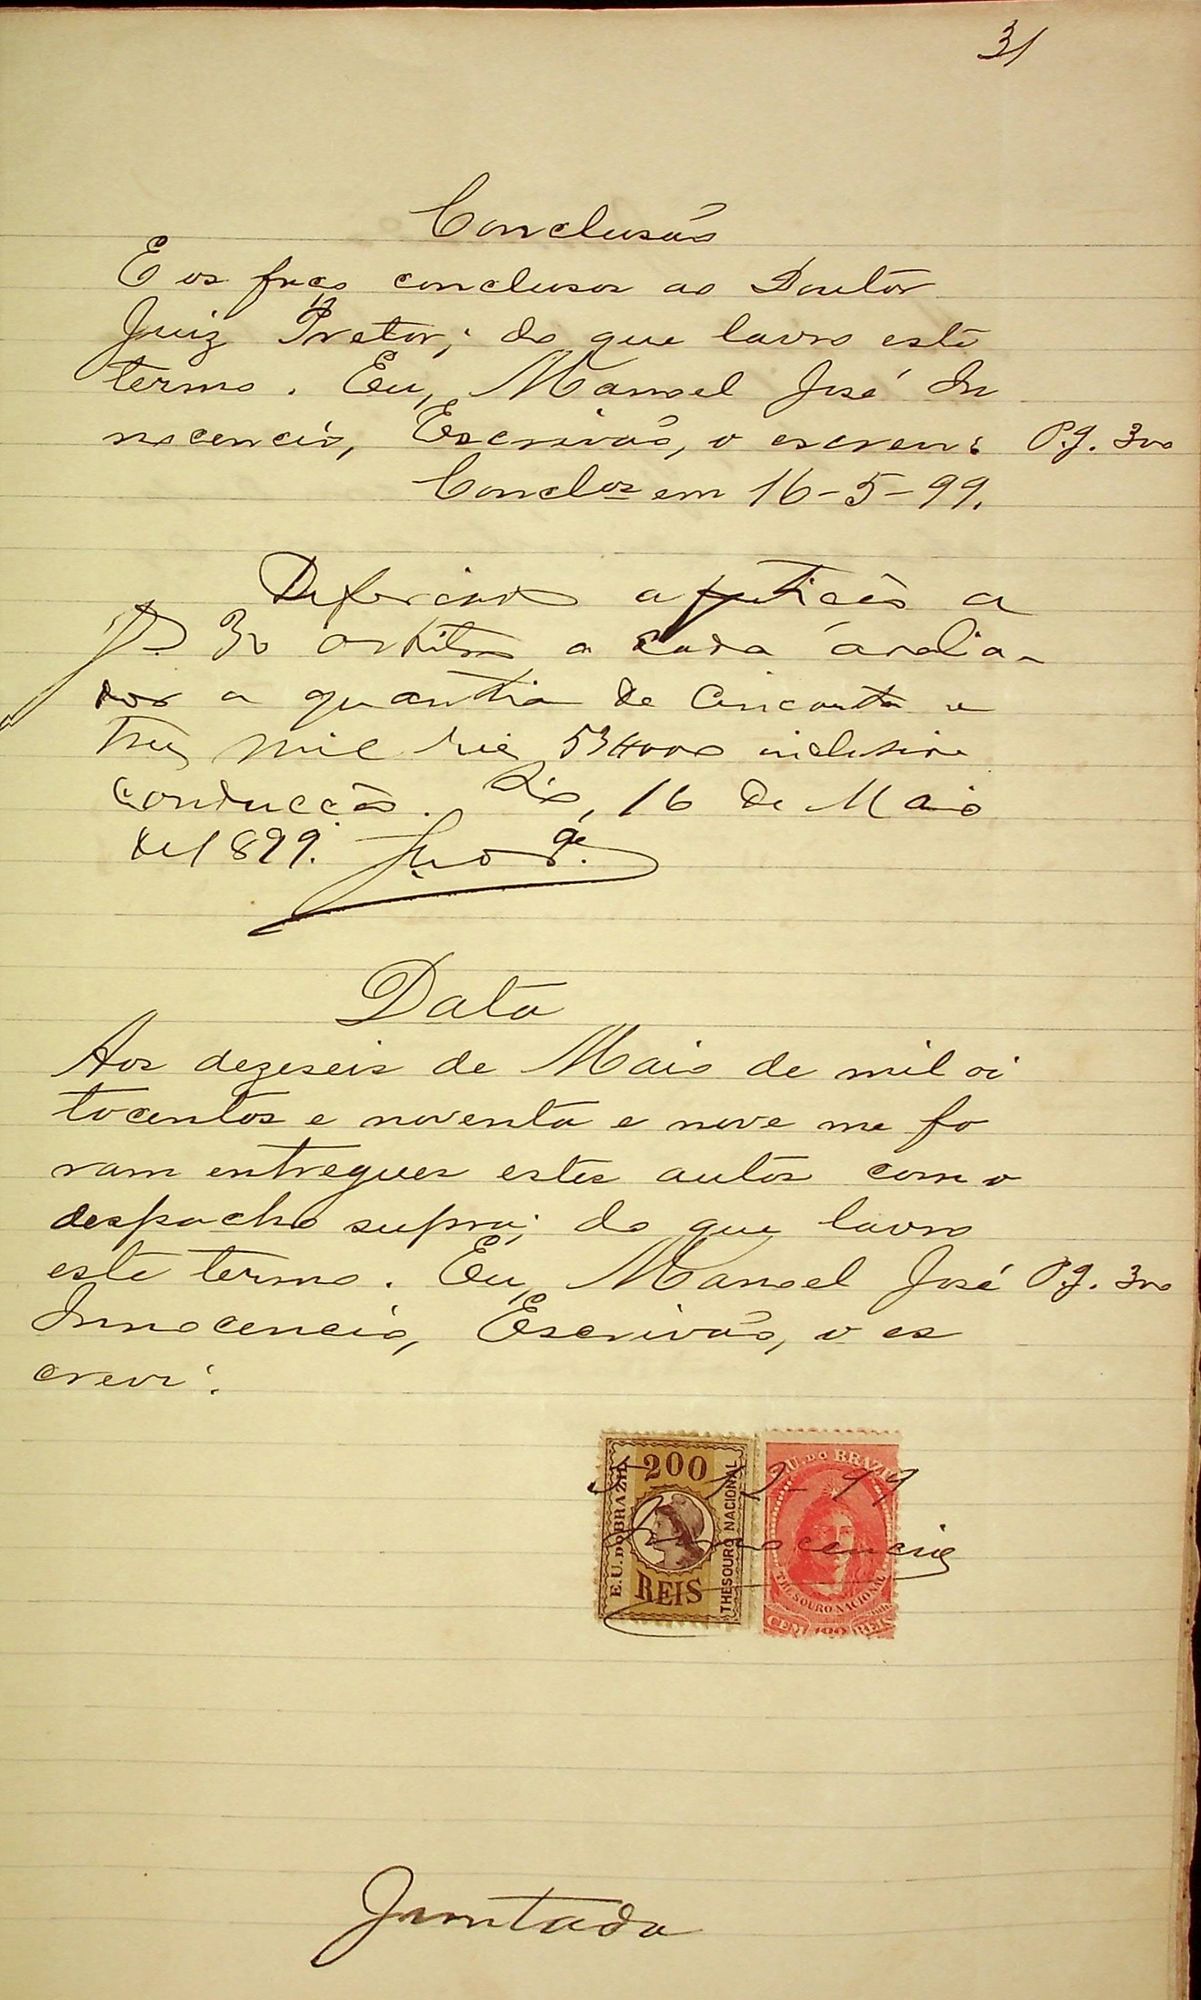 31
Conclusão
E os faço conclusos ao Doutor
Juiz Pretor; do que lavro este
termo. Eu, Manoel José In
nocencio, Escrivão, o escrevi: Pg. 300
Conclos em 16-5-99.
Deferindo a petição a
fs 30 arbitro a cada avalia-
dor a quantia de cincoenta e
tres mil reis 53$000 inclusive
conducção. Rio, 16 de Maio
de 1899.
Data
Aos dezeseis de Maio de mil oi
tocentos e noventa e nove me fo
ram entregues estes autos com o
despacho supra; do que lavro
este termo. Eu, Manoel José Pg. 300
Innocencio, Escrivão, o es
crevi.
200
E.U. DO BRAZIL
THESOURO NACIONAL
REIS
E.U. DO BRAZIL
THESOURO NACIONAL
CEM 100 REIS
99
Innocencio
Juntada